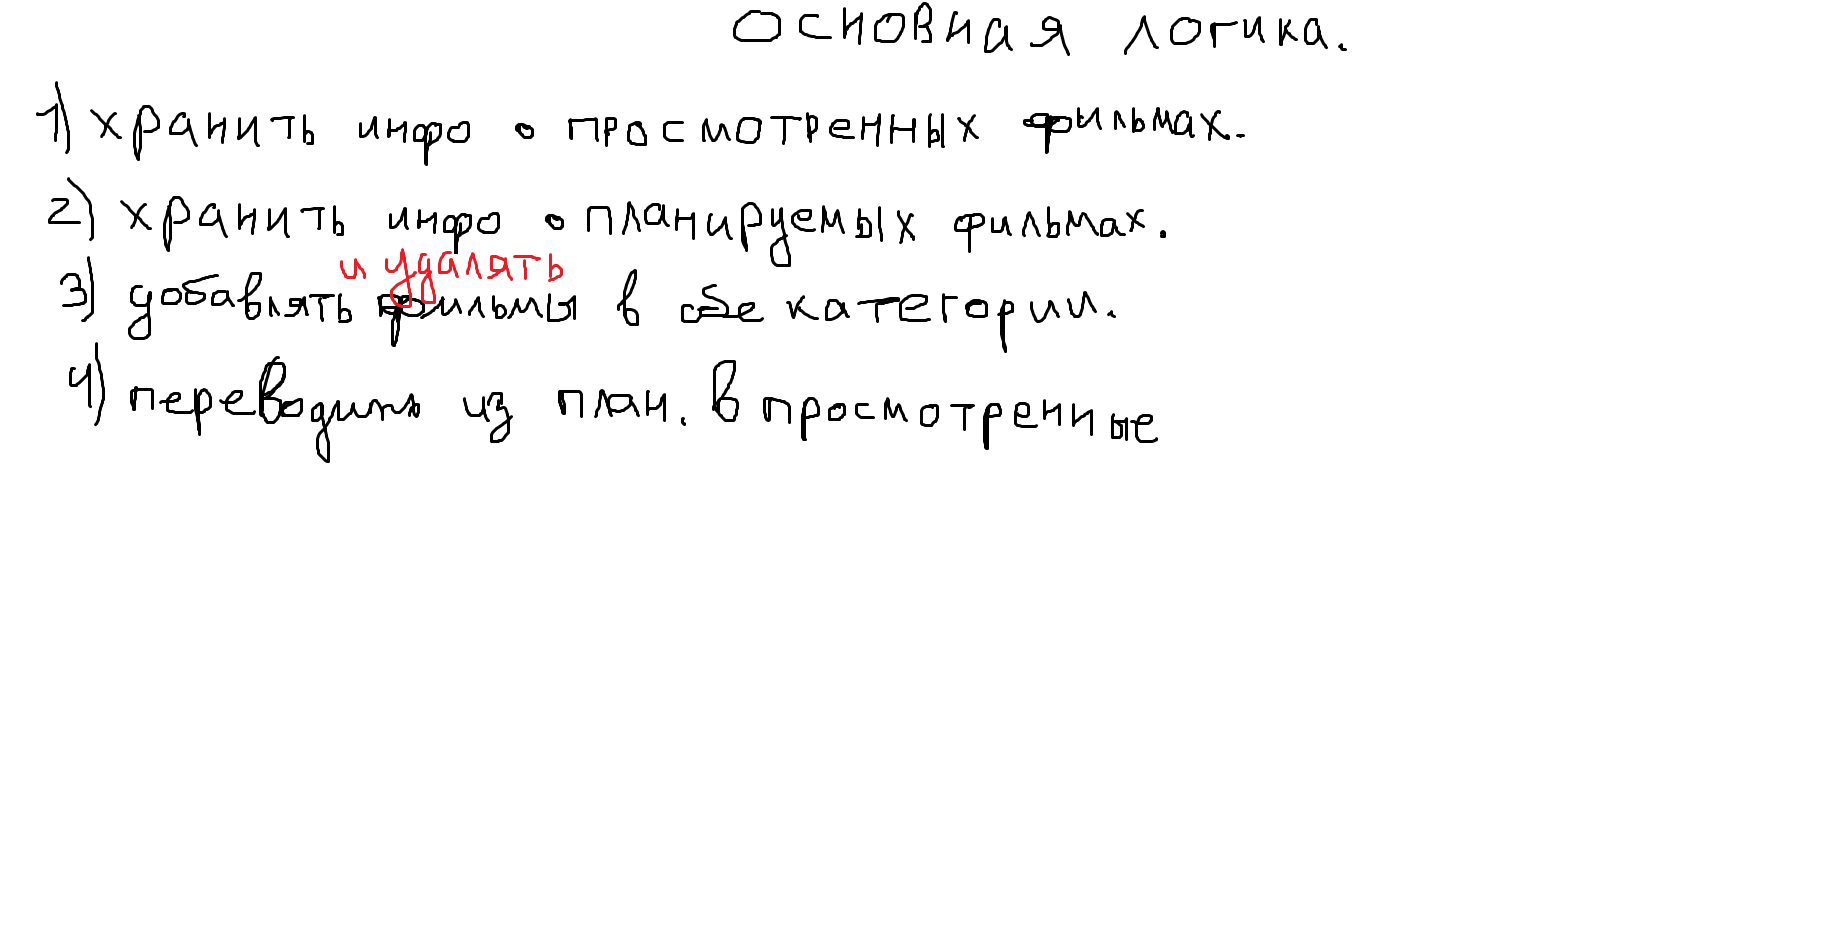 основная логика.
1) хранить инфо о просмотренных фильмах.
2) хранить инфо о планируемых фильмах.
и удалять
3) добавлять фильмы в обе категории.
4) переводить из план. в просмотренные